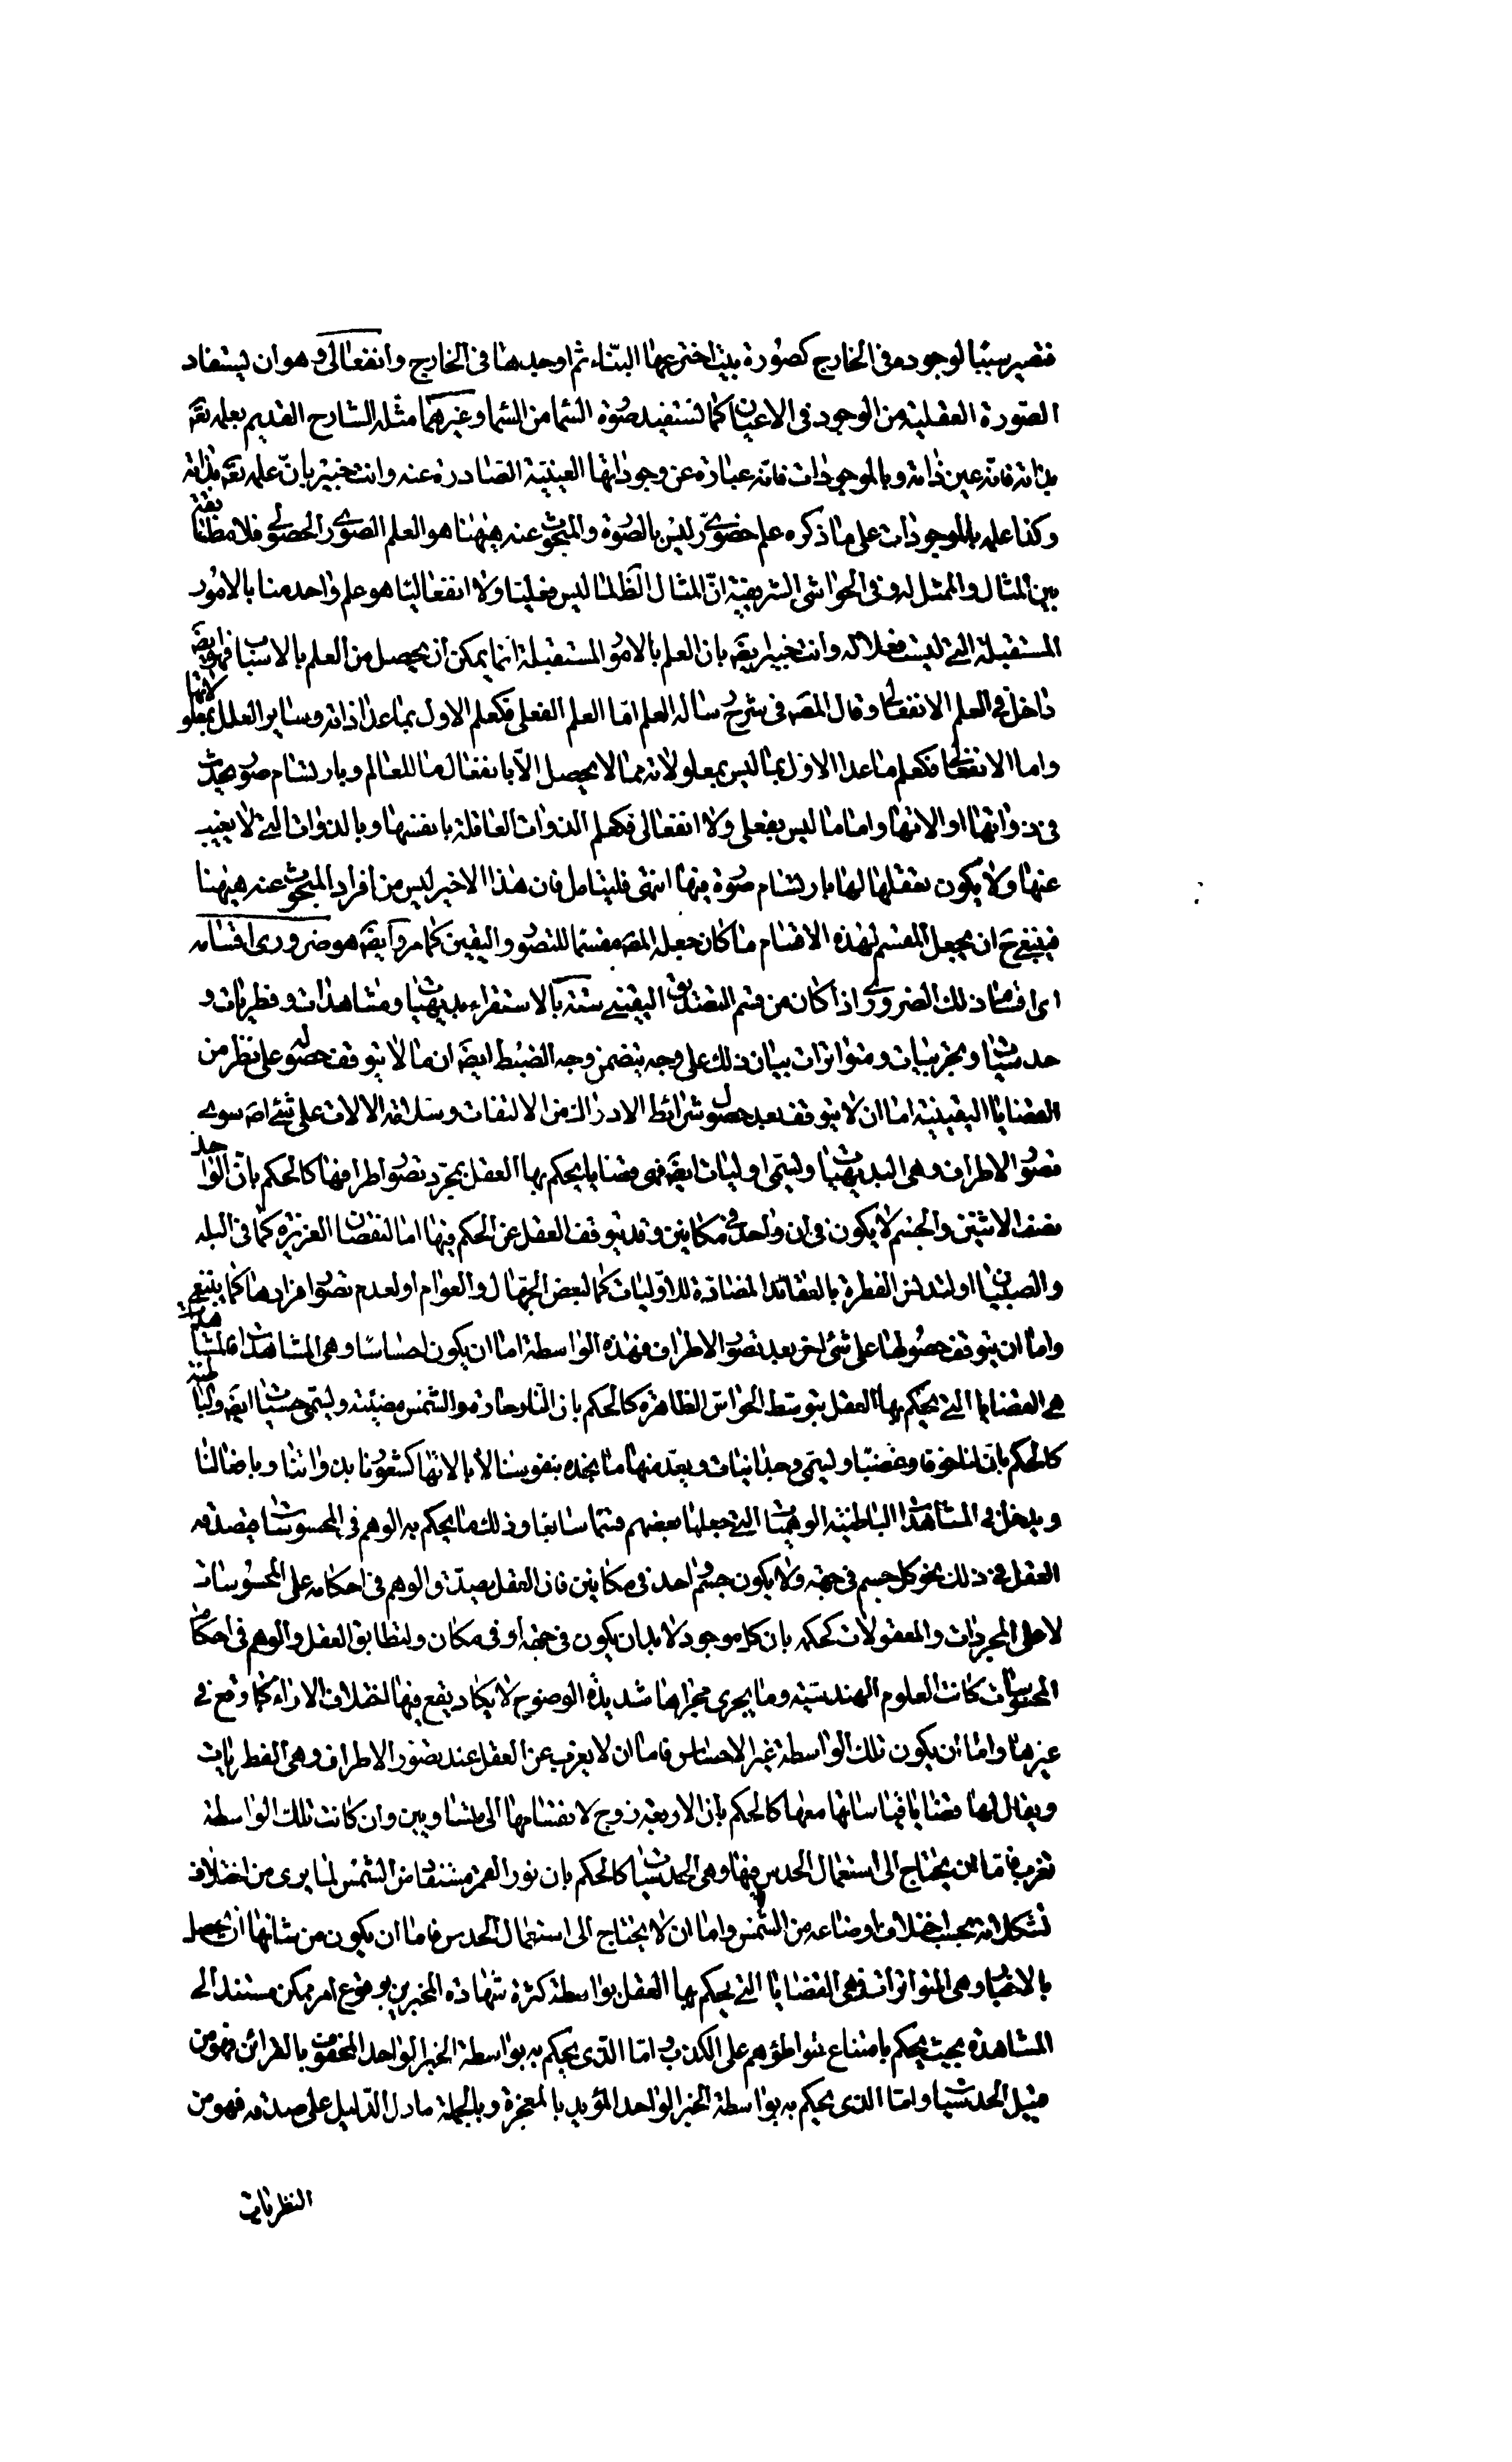 فتصير سببا لوجوده فى الخارج كصورة بيت اخترعها البنّاء ثم اوجدها فى الخارج وانفعالى وهو ان يستفاد
الصّورة العقلية من الوجود فى الاعيان كما نستفيد صورة السّما من السّما وغيرهما مثّله الشارح القديم بعلمه تعه
بذاته فانّه عين ذاته وبالموجودات فانّه عبارة عن وجوداتها العينيّة الصّادرة عنه وانت خبير بانّ علمه تعه بذاته
وكذا علمه بالموجودات على ما ذكره علم حضوريّ ليس بالصّورة والمبحوث عنه ههنا هو العلم الصوري الحصولي فلا مطابقة
بين المثال والممثل له وفى الحواشى الشريفيّة انّ المثال لما ليس فعليّا ولا انفعاليّا هو علم واحد منا بالامور
المستقبلة التى ليست فعلا له وانت خبير ايضه بان العلم بالامور المستقبلة انما يمكن ان يحصل من العلم بالاسباب فهو ايضه
داخل فى العلم الانفعالى وقال المصه فى شرح رسالة العلم امّا العلم الفعلى فكعلم الاول بما عدا ذاته وسائر العلل بمعلولاتها
واما الانفعالى فكعلم ما عدا الاول بما ليس بمعلولاته مما لا يحصل الّا بانفعال ما للعالم وبارتسام صور تحدث
فى ذواتها او الاتها واما ما ليس بفعلى ولا انفعالى فكعلم الذوات العاقلة بانفسها وبالذوات التى لا يغيب
عنها ولا يكون تعقلها لها بارتسام صورة فيها انتهى فليتامل فان هذا الاخير ليس من افراد المبحوث عنه ههنا
فينبغى ح ان يجعل المقسم لهذه الاقسام ما كان جعله المصه مقسما للتصور واليقين كما مر وايضه هو ضرورى اقسامه
اى اقسام ذلك الضرورى اذا كان من قسم التصديق اليقينى ستة بالاستقراء بديهيات ومشاهدات وفطريات و
حدسيات ومجربيات ومتواترات بيان ذلك على وجه يتضمن وجه الضبط ايضه ان ما لا يتوقف حصوله على نظر من
القضايا اليقينية اما ان لا يتوقف بعد حصول شرائط الادراك من الالتفات وسلامة الالات على شئ اصه سوى
تصور الاطراف وهى البديهيات وتسمّى اوليات ايضه فهى قضايا يحكم بها العقل بمجرّد تصور اطرافها كالحكم بانّ الواحد
نصف الاثنين والجسم لا يكون فى ان واحد فى مكانين وقد يتوقف العقل عن الحكم فيها اما لنقصان الغريزة كما فى البله
والصبيان او لتدنس الفطرة بالعقائد المضادّة للاوّليات كما لبعض الجهّال والعوام او لعدم تصور افرادها كما ينبغى
واما ان يتوقف حصولها على شئ اخر بعد تصور الاطراف فهذه الواسطة اما ان يكون احساسا وهى المشاهدات فالمشاهدات
هى القضايا التى يحكم بها العقل بتوسط الحواسّ الظاهرة كالحكم بان النار حارة والشمس مضيئة وتسمى حسيات ايضه والباطنة
كالحكم بانّ لنا خوفا وغضبا وتسمّى وجدانيات ويعدّ منها ما نجده بنفوسنا لا بالاتها كشعورنا بذواتنا وبافعالنا
ويدخل فى المشاهدات الباطنية الوهميات التى جعلها بعضهم قسما سابعا وذلك ما يحكم به الوهم فى المحسوسات فيصدقه
العقل فى ذلك نحو كل جسم فى جهة ولا يكون جسم واحد فى مكانين فان العقل يصدّق الوهم فى احكامه على المحسوسات
لا على المجردات والمعقولات كحكمه بان كل موجود لا بد ان يكون فى جهة او فى مكان ولتطابق العقل والوهم فى احكام
المحسوسات كانت العلوم الهندسية وما يجرى مجراها شديدة الوضوح لا يكاد يقع فيها اختلاف الاراء كما وقع فى
غيرها واما ان يكون تلك الواسطة غير الاحساس فاما ان لا يعزب عن العقل عند تصور الاطراف وهى الفطريات
ويقال لها قضايا قياساتها معها كالحكم بان الاربعة زوج لانقسامها الى متساويين وان كانت تلك الواسطة
تعزب فامّا ان يحتاج الى استعمال الحدس فيها وهى الحدسيات كالحكم بان نور القمر مستفاد من الشمس لما يرى من اختلاف
تشكلاته بحسب اختلاف اوضاعه من الشمس واما ان لا يحتاج الى استعمال الحدس فاما ان يكون من شانها ان يحصل
بالاخبار وهى المتواترات فهى القضايا التى يحكم بها العقل بواسطة كثرة شهادة المخبرين بوقوع امر ممكن مستند الى
المشاهدة بحيث يحكم بامتناع تواطؤهم على الكذب امّا الّذى يحكم به بواسطة الخبر الواحد المحفوف بالقرائن فهو من
قبيل الحدسيات وامّا الذى يحكم به بواسطة الخبر الواحد المؤيد بالمعجزة وبالجملة ما دل الدّليل على صدقه فهو من
النظريات